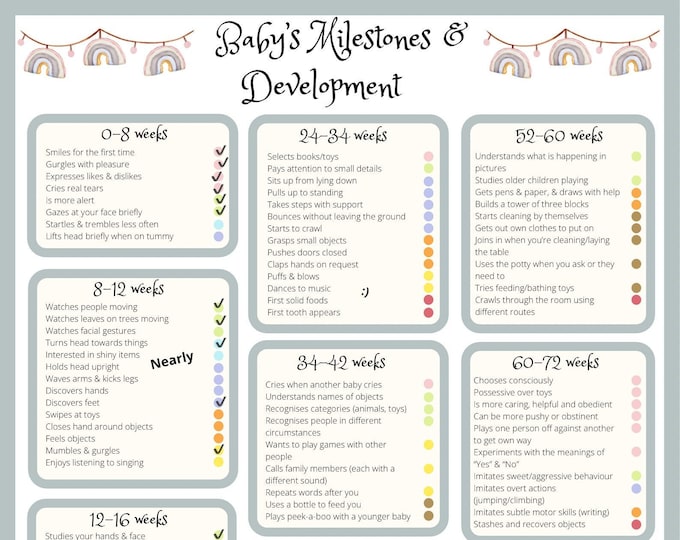 Baby's Milestones &
Development
0-8 weeks
Smiles for the first time
Gurgles with pleasure
Expresses likes & dislikes
Cries real tears
Is more alert
Gazes at your face briefly
Startles & trembles less often
Lifts head briefly when on tummy
8-12 weeks
Watches people moving
Watches leaves on trees moving
Watches facial gestures
Turns head towards things
Interested in shiny items
Holds head upright
Nearly
Waves arms & kicks legs
Discovers hands
Discovers feet
Swipes at toys
Closes hand around objects
Feels objects
Mumbles & gurgles
Enjoys listening to singing
12-16 weeks
Studies your hands & face
24-34 weeks
Selects books/toys
Pays attention to small details
Sits up from lying down
Pulls up to standing
Takes steps with support
Bounces without leaving the ground
Starts to crawl
Grasps small objects
Pushes doors closed
Claps hands on request
Puffs & blows
Dances to music
:)
First solid foods
First tooth appears
34-42 weeks
Cries when another baby cries
Understands names of objects
Recognises categories (animals, toys)
Recognises people in different
circumstances
Wants to play games with other
people
Calls family members (each with a
different sound)
Repeats words after you
Uses a bottle to feed you
Plays peek-a-boo with a younger baby
52-60 weeks
Understands what is happening in
pictures
Studies older children playing
Gets pens & paper, & draws with help
Builds a tower of three blocks
Starts cleaning by themselves
Gets out own clothes to put on
Joins in when you're cleaning/laying
the table
Uses the potty when you ask or they
need to
Tries feeding/bathing toys
Crawls through the room using
different routes
60-72 weeks
Chooses consciously
Possessive over toys
Is more caring, helpful and obedient
Can be more pushy or obstinent
Plays one person off against another
to get own way
Experiments with the meanings of
"Yes" & "No"
Imitates sweet/aggressive behaviour
Imitates overt actions
(jumping/climbing)
Imitates subtle motor skills (writing)
Stashes and recovers objects